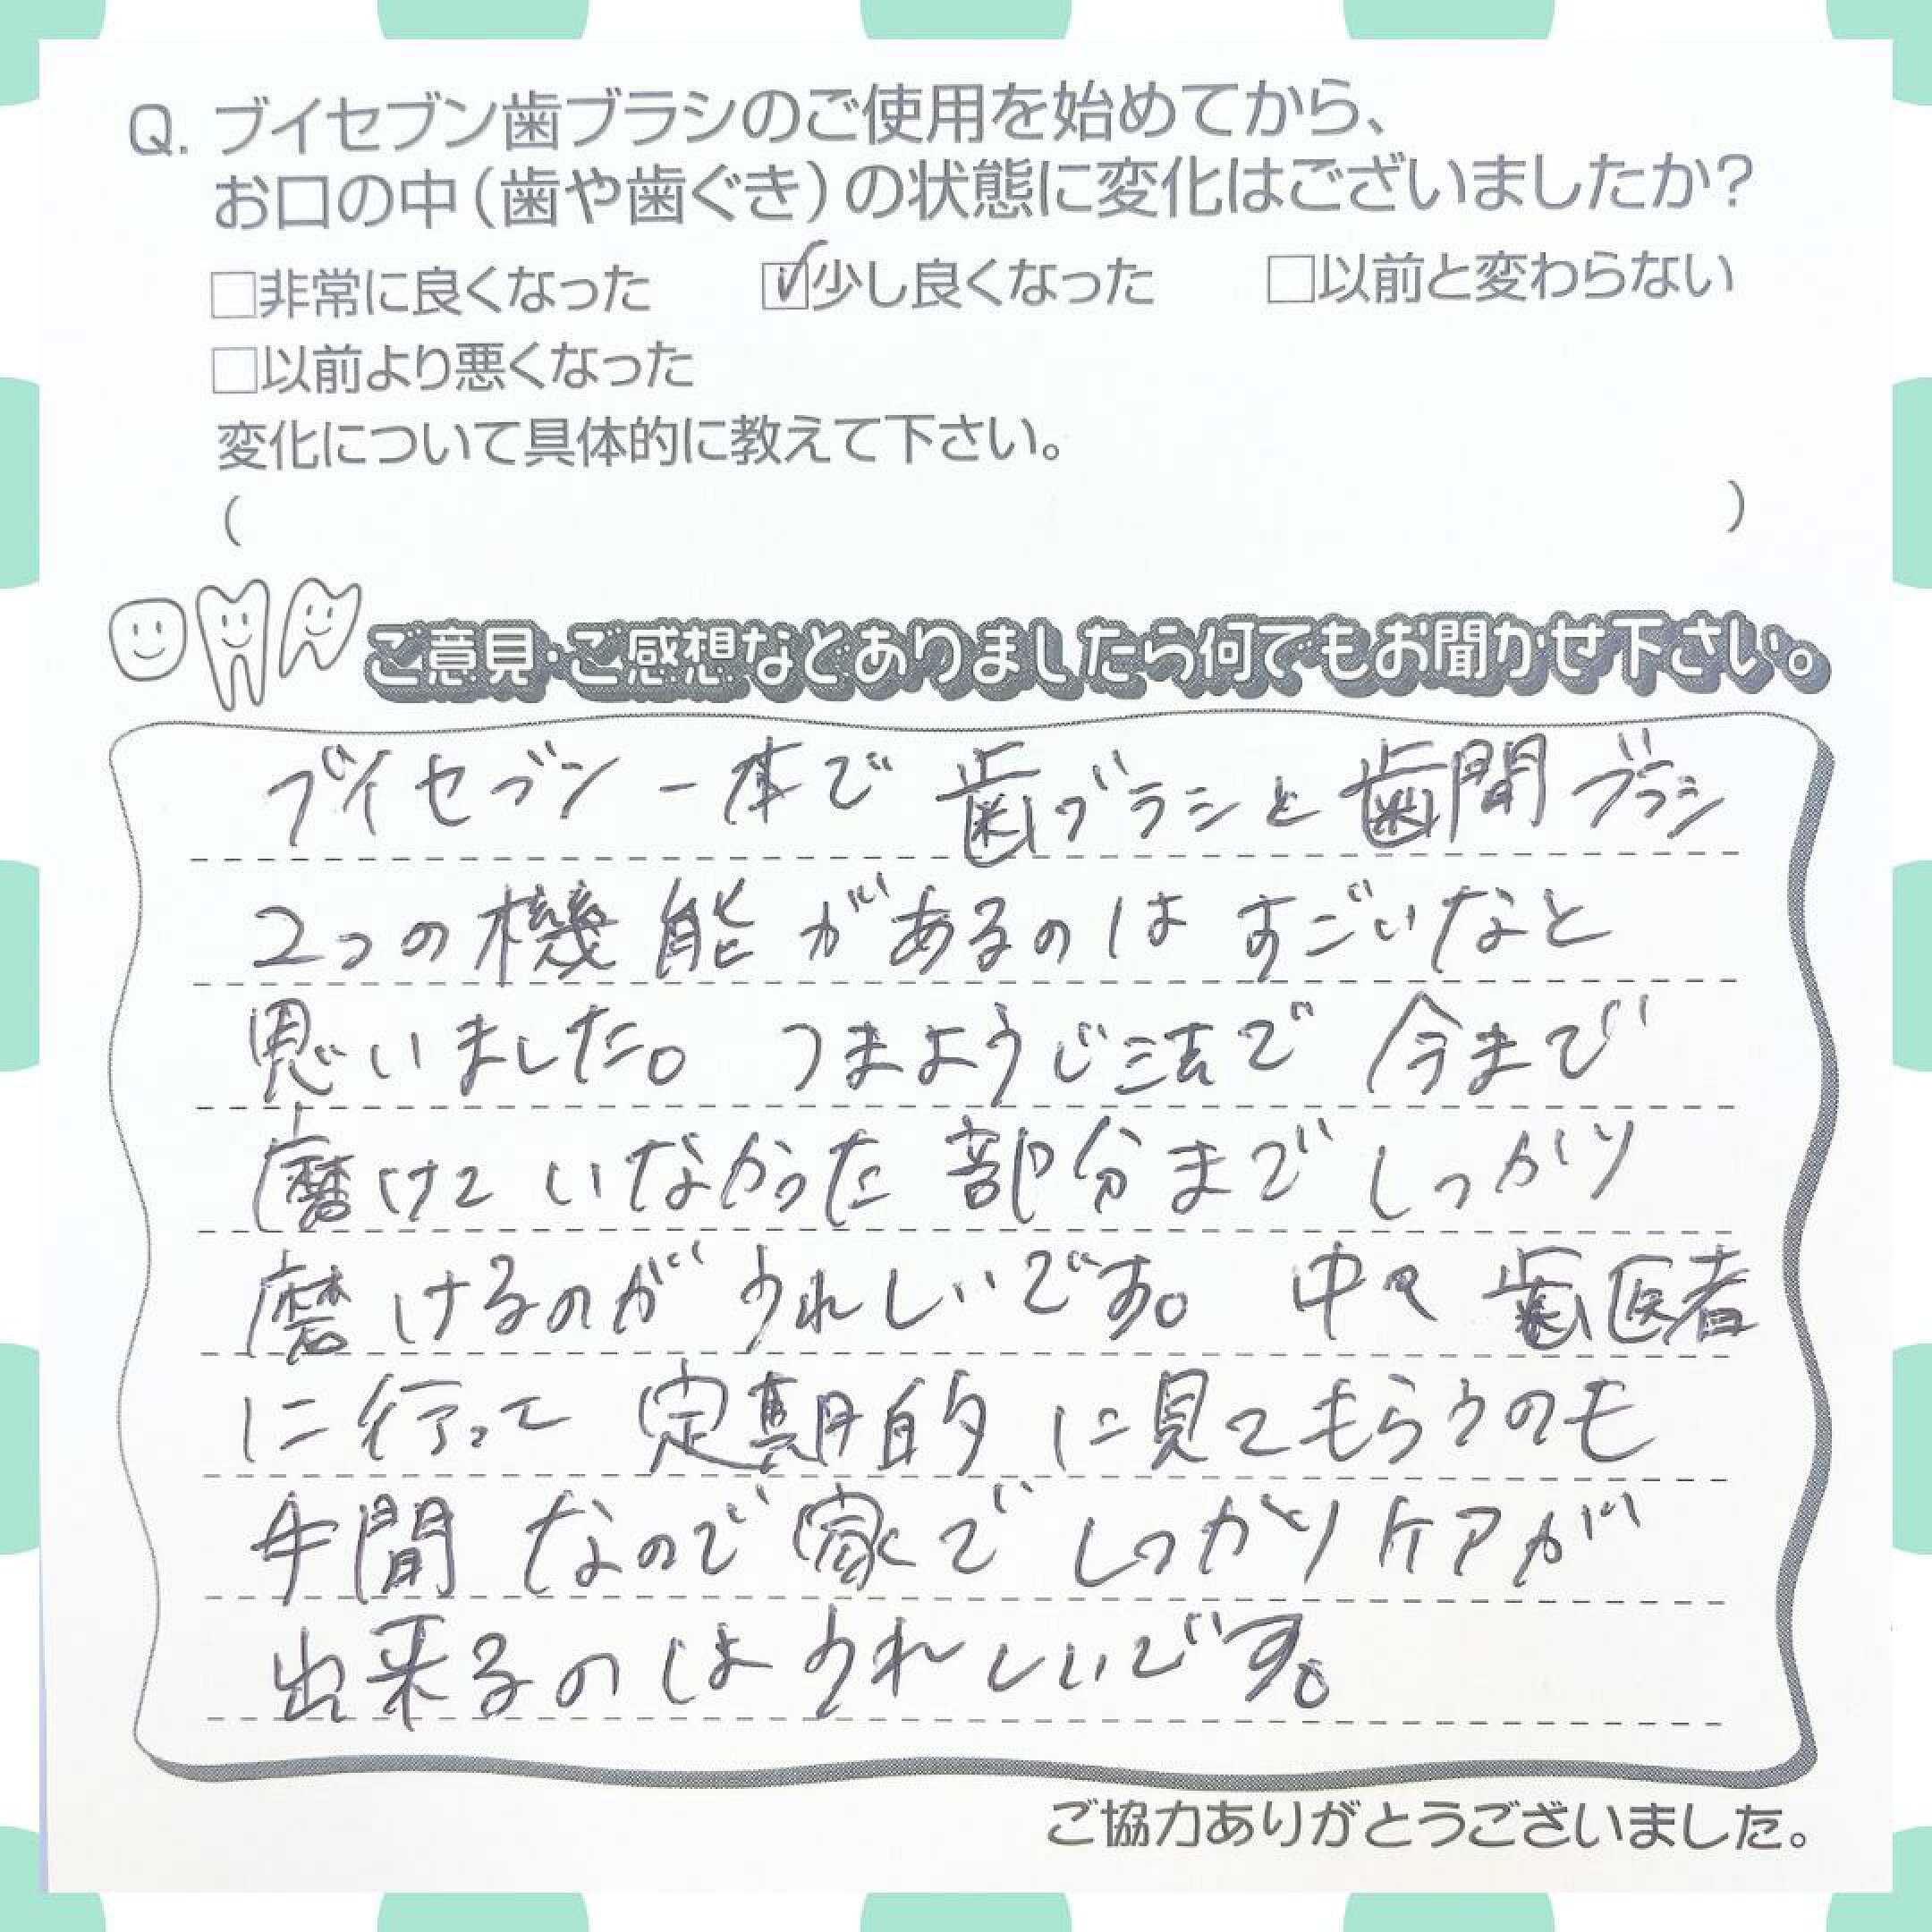 Q. ブイセブン歯ブラシのご使用を始めてから、
お口の中（歯や歯ぐき）の状態に変化はございましたか？
□非常に良くなった ☑少し良くなった □以前と変わらない
□以前より悪くなった
変化について具体的に教えて下さい。
（ ）
ご意見・ご感想などありましたら何でもお聞かせ下さい。
ブイセブン一本で歯ブラシと歯間ブラシ
2つの機能があるのはすごいなと
思いました。つまようじ法で今まで
磨けていなかった部分までしっかり
磨けるのがうれしいです。中々歯医者
に行って定期的に見てもらうのも
手間なので家でしっかりケアが
出来るのはうれしいです。
ご協力ありがとうございました。